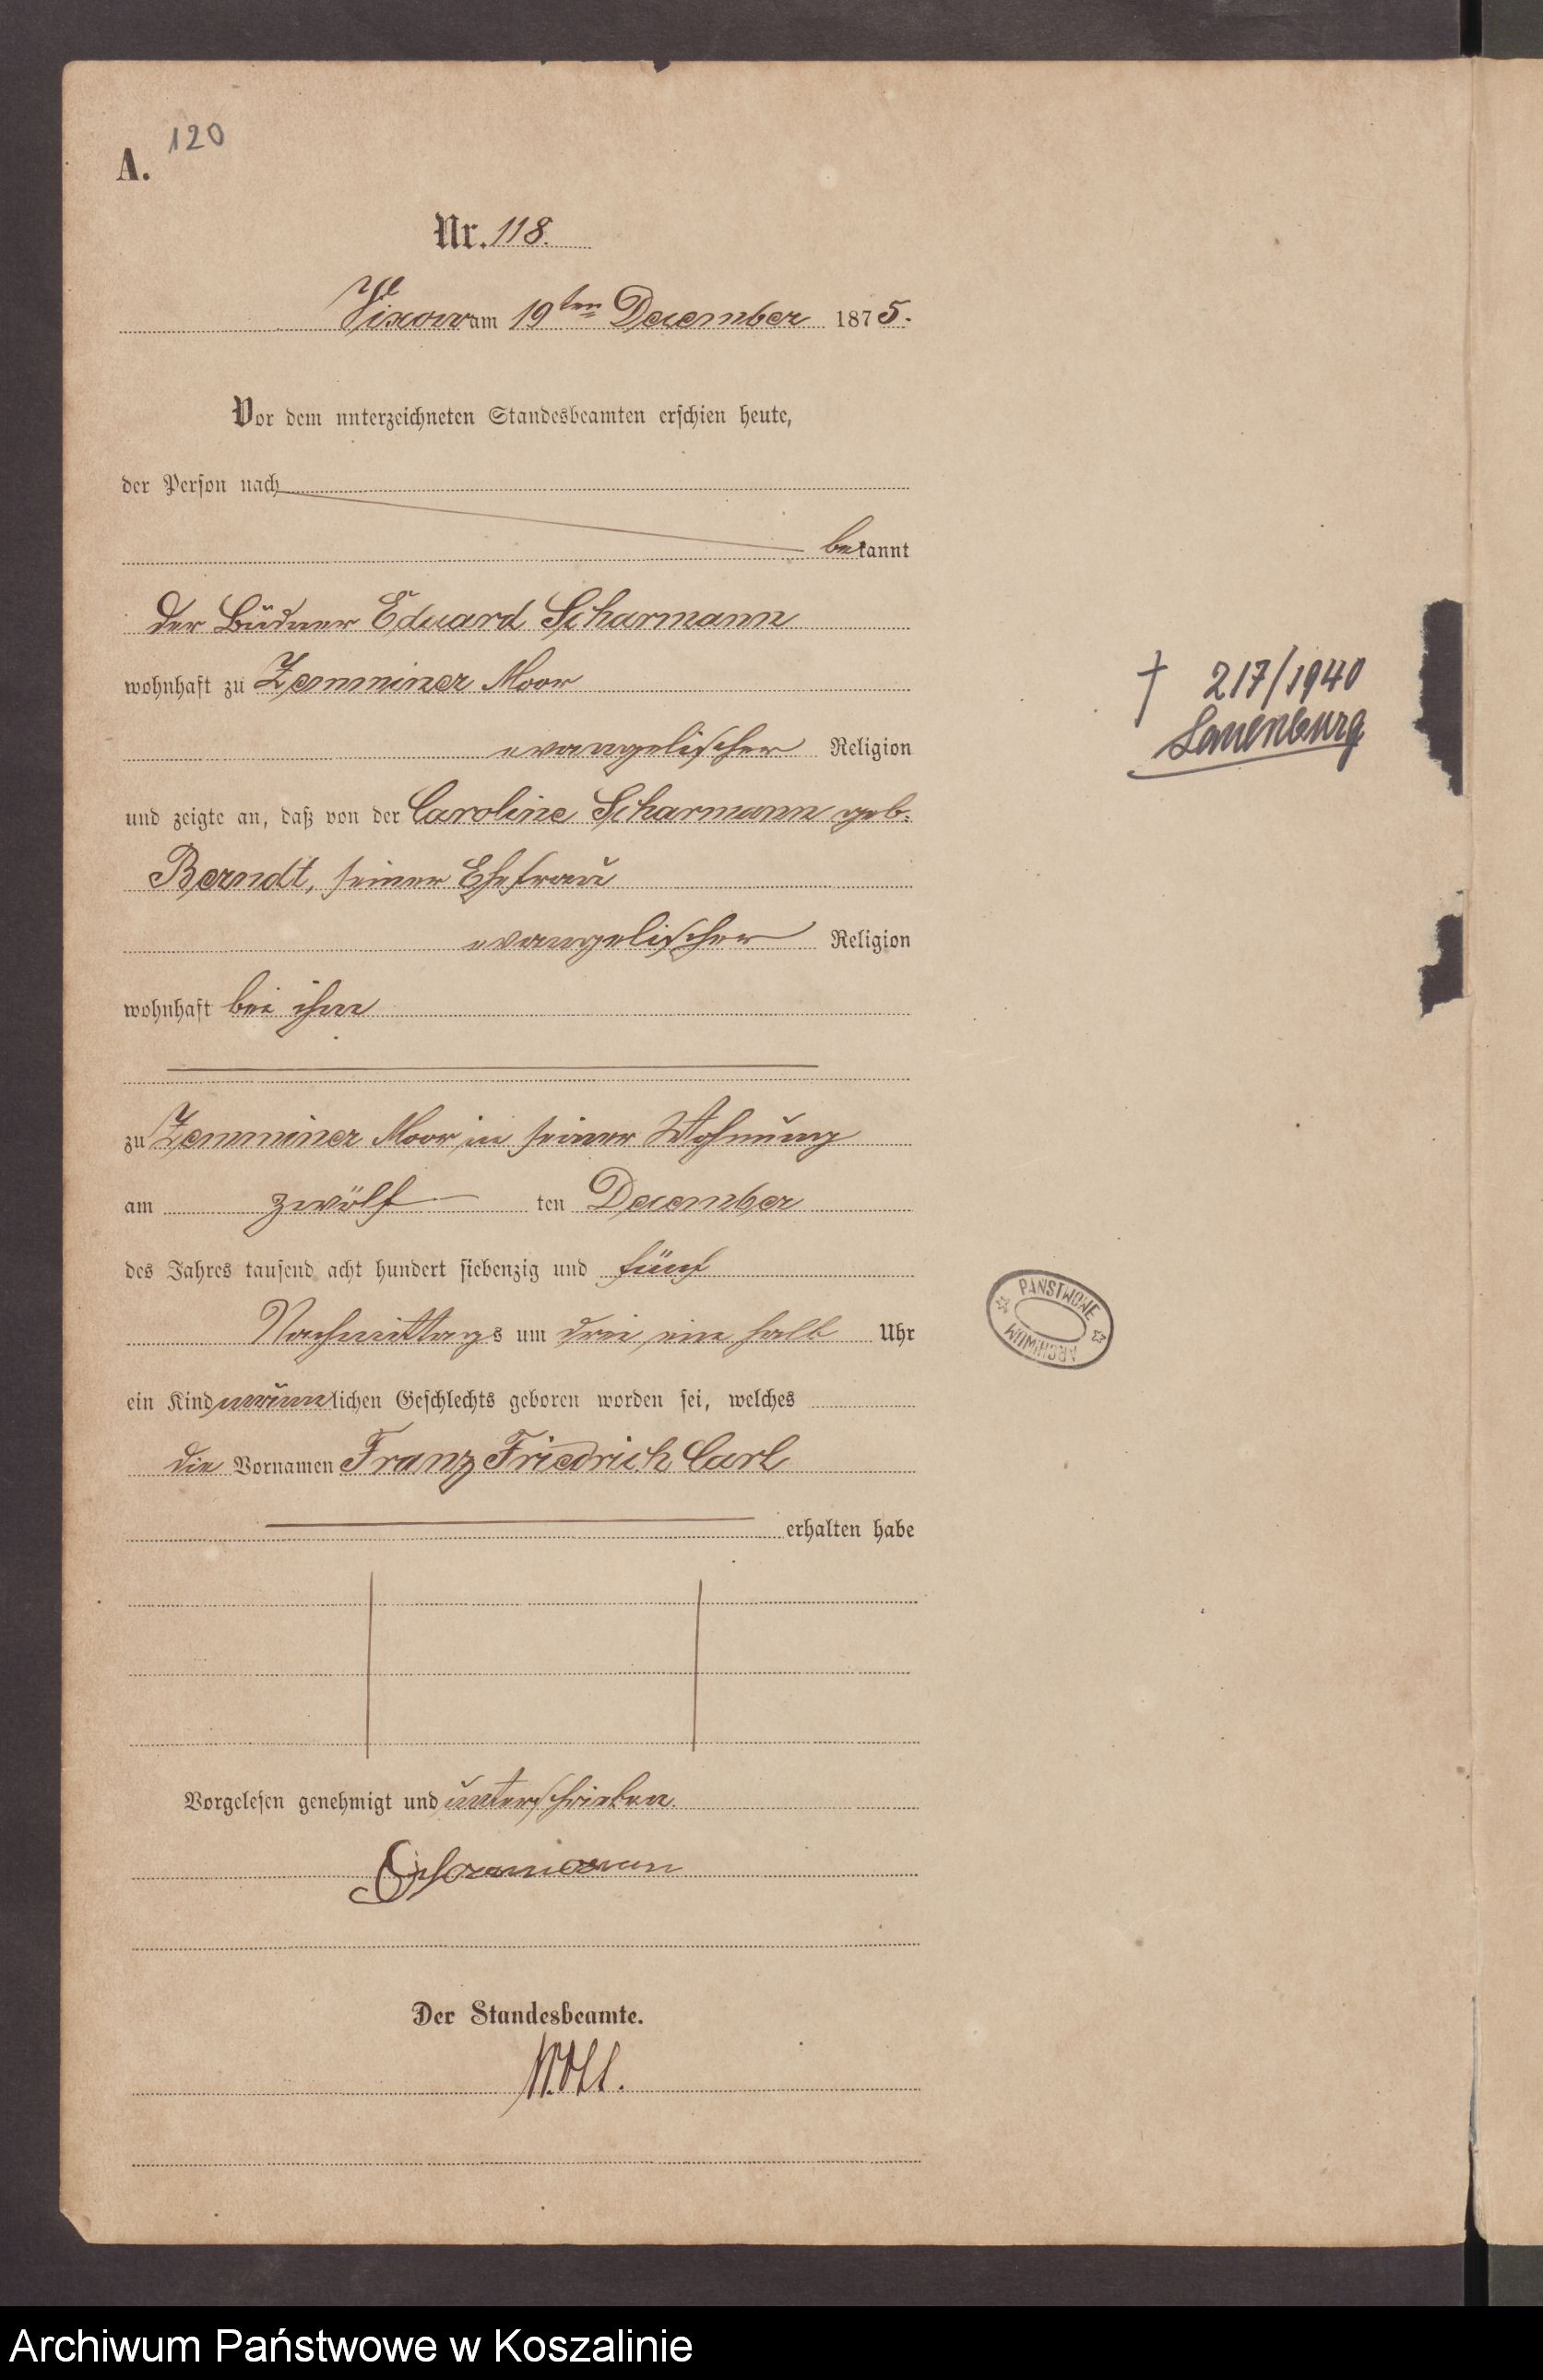 120
A.
Nr. 118.
Vixow am 19ten December 1875.
Vor dem unterzeichneten Standesbeamten erschien heute,
der Person nach
bekannt
der Büdner Eduard Scharmann
wohnhaft zu Zemminer Moor
evangelischer Religion
und zeigte an, daß von der Caroline Scharmann geb.
Berndt, seiner Ehefrau
evangelischer Religion
wohnhaft bei ihm
zu Zemminer Moor in seiner Wohnung
am zwölf ten December
des Jahres tausend acht hundert siebenzig und fünf
Nachmittags um drei ein halb Uhr
ein Kind männlichen Geschlechts geboren worden sei, welches
die Vornamen Franz Friedrich Carl
erhalten habe
Vorgelesen genehmigt und unterschrieben.
Der Standesbeamte.
† 217/1940
Lauenburg
PAŃSTWOWE
ARCHIWUM
Archiwum Państwowe w Koszalinie